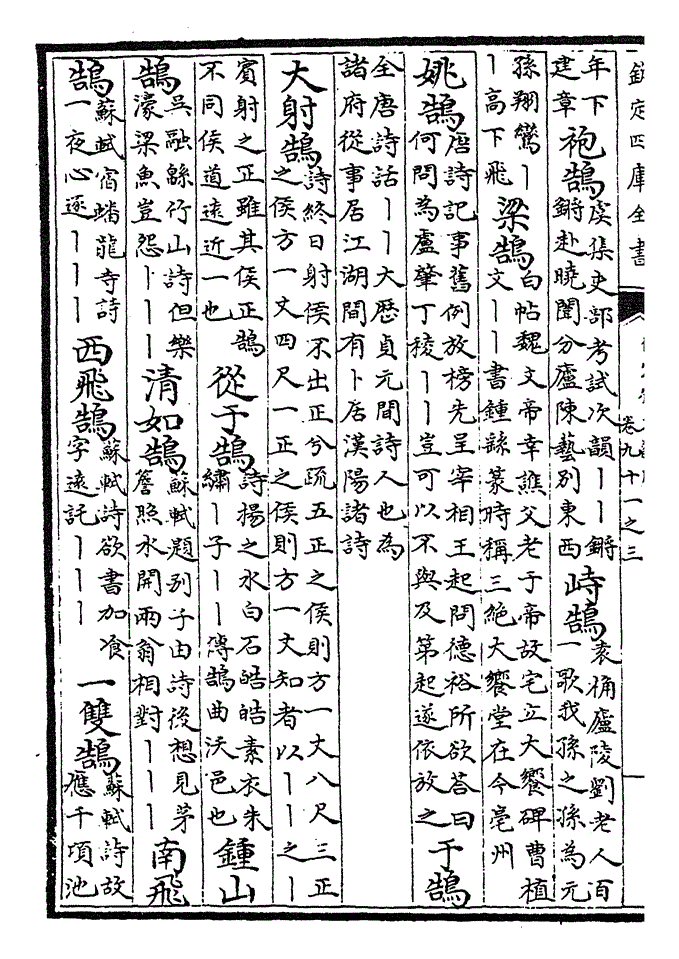 欽定四庫全書
卷九十一之三
年下
建章
袍鵠
虞集吏部考試次韻丨丨鏘
鏘赴曉聞分廬陳藝別東西
峙鵠
袁桷廬陵劉老人百
一歌我孫之孫為元
孫翔鸞丨
丨高下飛
梁鵠
白帖魏文帝幸譙父老于帝故宅立大饗碑曹植
文丨丨書鍾繇篆時稱三絕大饗堂在今亳州
姚鵠
唐詩記事舊例放榜先呈宰相王起問德裕所欲答曰
何問為盧肇丁稜丨丨豈可以不與及第起遂依放之
于鵠
全唐詩話丨丨大歷貞元間詩人也為
諸府從事居江湖間有卜居漢陽諸詩
大射鵠
詩終日射侯不出正兮疏五正之侯則方一丈八尺三正
之侯方一丈四尺一正之侯則方一丈知者以丨丨之丨
賓射之正雖其侯正鵠
不同侯道遠近一也
從于鵠
詩揚之水白石皓皓素衣朱
繡丨子丨丨傳鵠曲沃邑也
鍾山
鵠
吳融緜竹山詩但樂
濠梁魚豈怨丨丨丨
清如鵠
蘇軾題別子由詩後想見茅
簷照水開兩翁相對丨丨丨
南飛
鵠
蘇軾宿蟠龍寺詩
一夜心逐丨丨丨
西飛鵠
蘇軾詩欲書加飡
字遠託丨丨丨
一雙鵠
蘇軾詩故
應千頃池